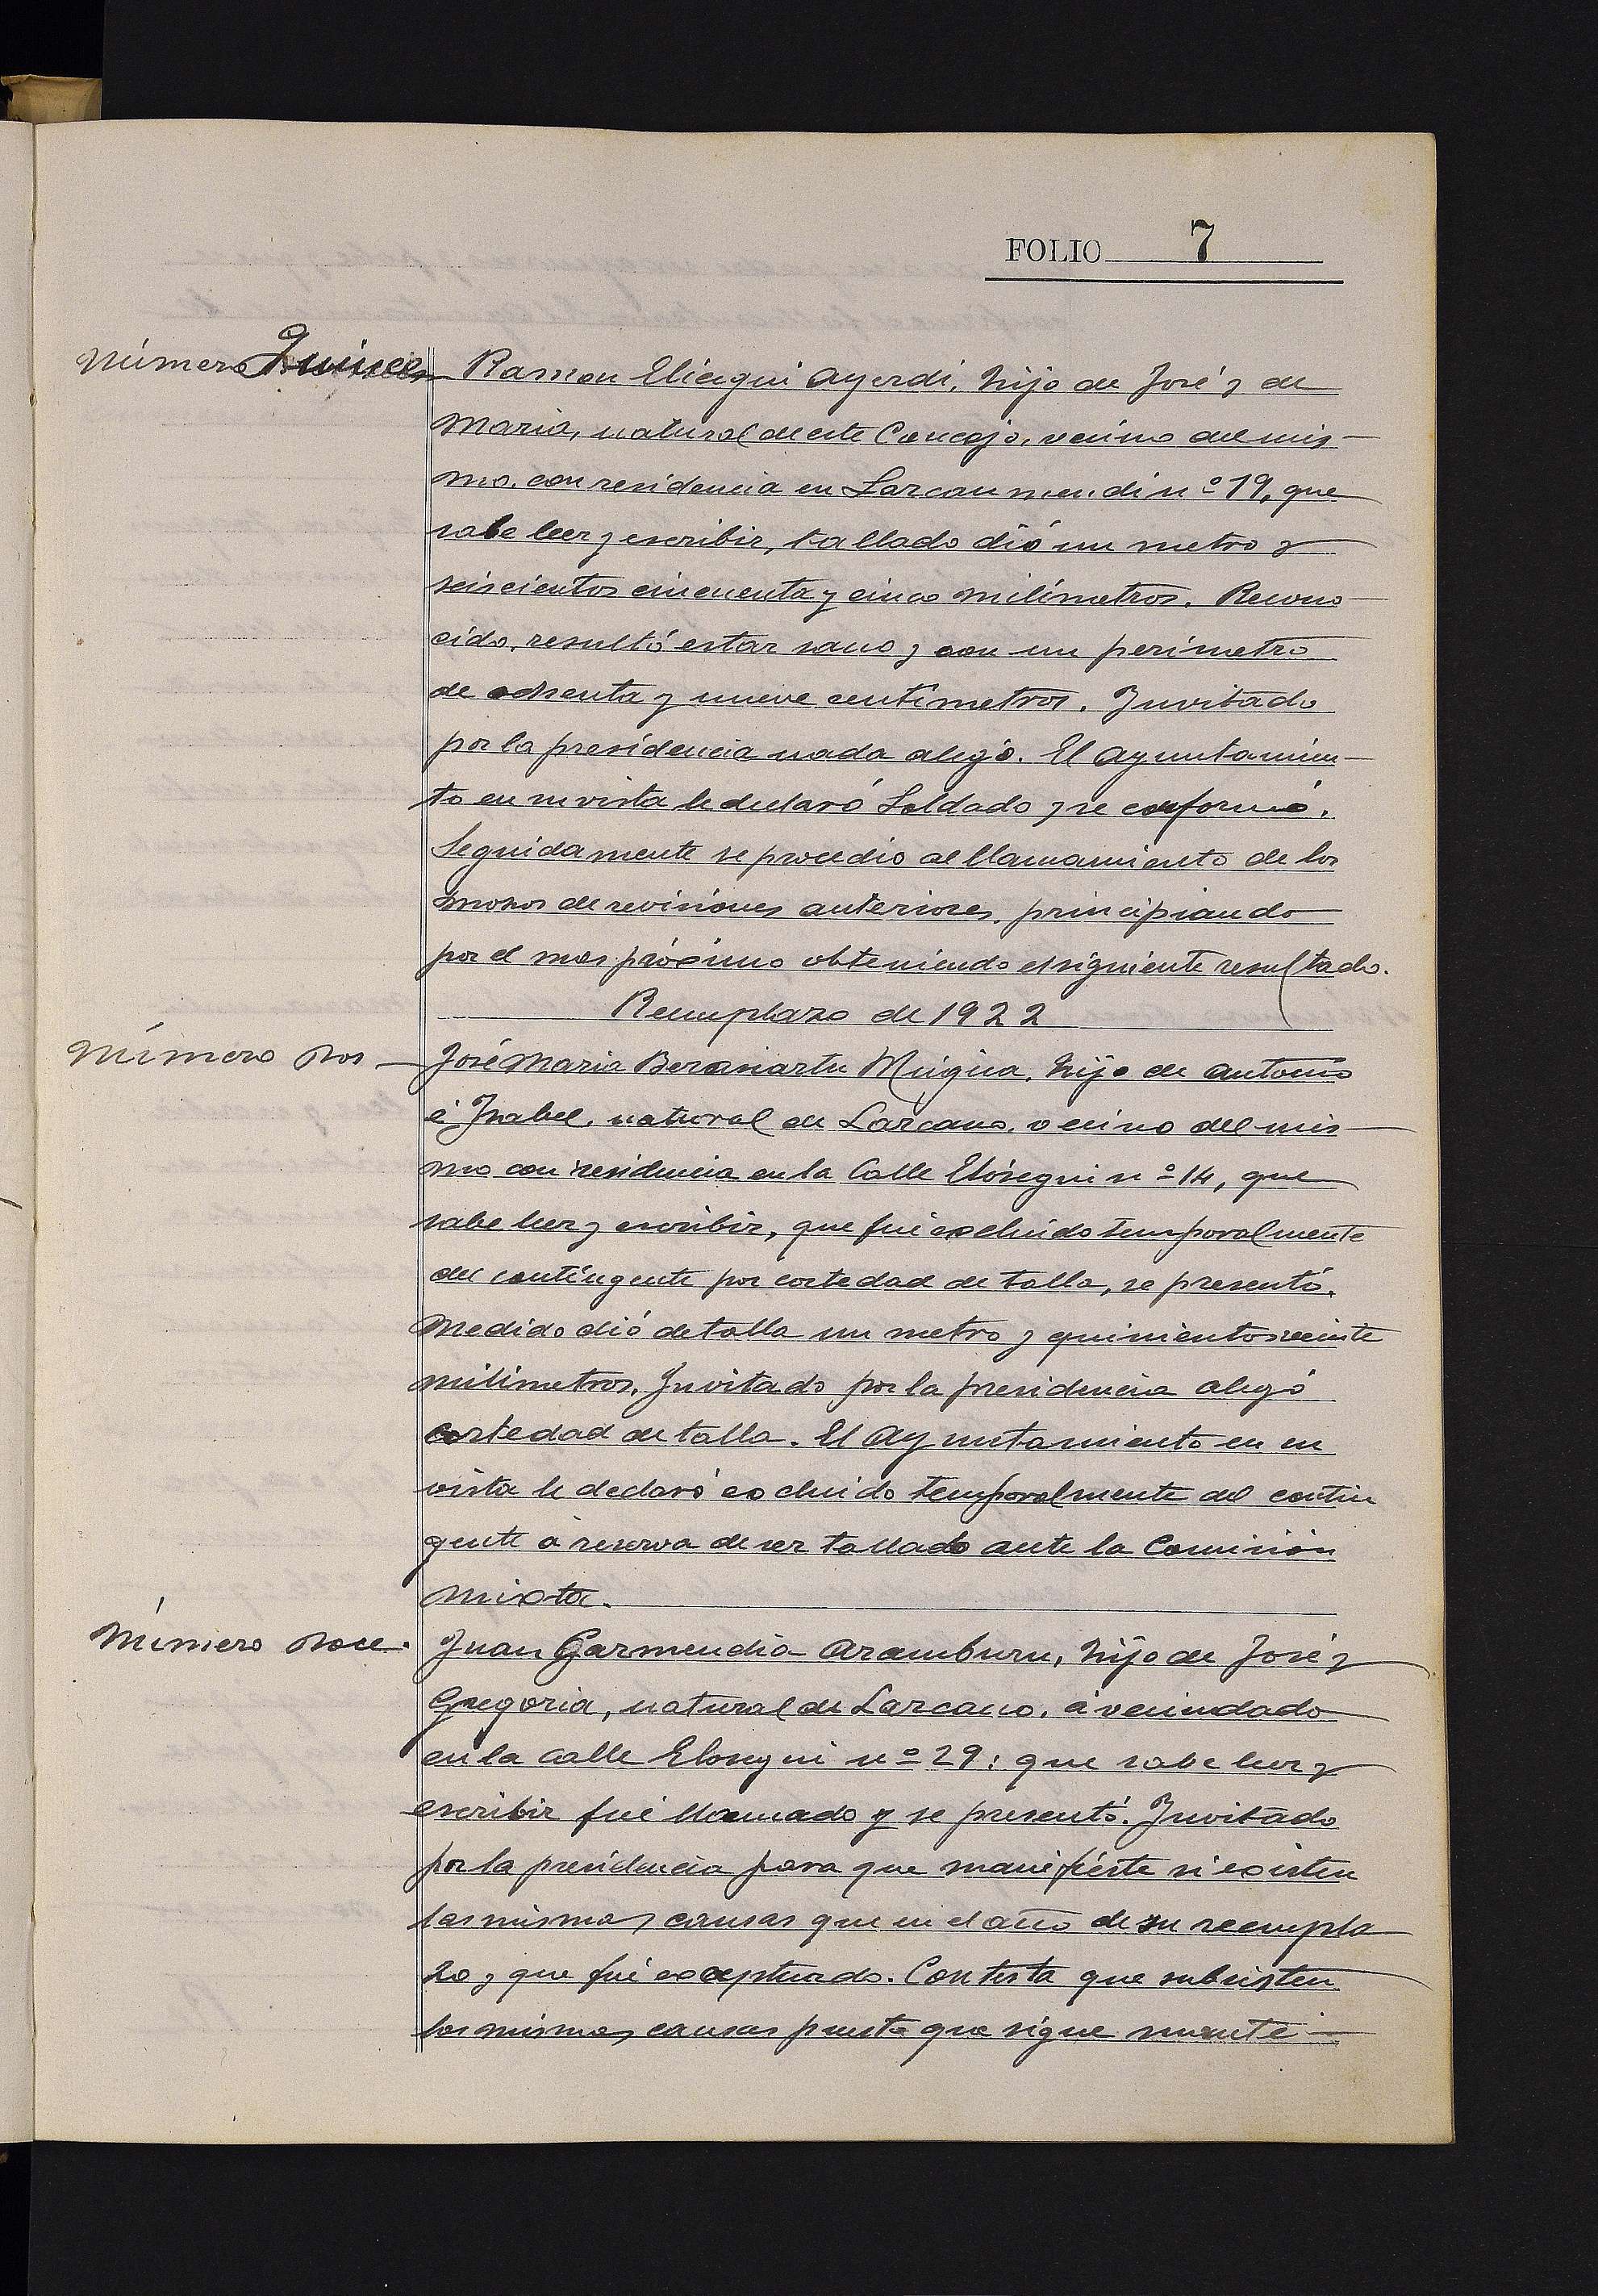 FOLIO 7
Número Quince
Ramon Eliczgui Ayerdi, hijo de José y de
Maria, natural de este Concejo, vecino del mis-
mo, con residencia en Lazcaumendi nº 19, que
sabe leer y escribir, tallado dió un metro y
seiscientos cincuenta y cinco milímetros. Recono-
cido, resultó estar sano y con un perímetro
de ochenta y nueve centímetros. Invitado
por la presidencia nada alegó. El Ayuntamien-
to en su vista le declaró Soldado y se conformó.
Seguidamente se procedio al llamamiento de los
mozos de revisiones anteriores, principiando
por el mas próximo obteniendo el siguiente resultado.
Reemplazo de 1922
Número Dos
José Maria Berasiartu Múgica, hijo de Antonio
é Isabel, natural de Lazcano, vecino del mis-
mo con residencia en la Calle Elósegui nº 14, que
sabe leer y escribir, que fué excluido temporalmente
del contingente por cortedad de talla, se presentó.
Medido dió de talla un metro y quinientos veinte
milimetros. Invitado por la presidencia alegó
cortedad de talla. El Ayuntamiento en su
vista le declaró excluido temporalmente del contin
gente á reserva de ser tallado ante la Comisión
mixta.
Número Doce.
Juan Garmendia Aramburu, hijo de José y
Gregoria, natural de Lazcano, avecindado
en la calle Elosegui nº 29: que sabe leer y
escribir fué llamado y se presentó. Invitado
por la presidencia para que manifieste si existen
las mismas causas que en el año de su reempla
zo, y que fué exceptuado. Contesta que subsisten
las mismas causas puesto que sigue mante-